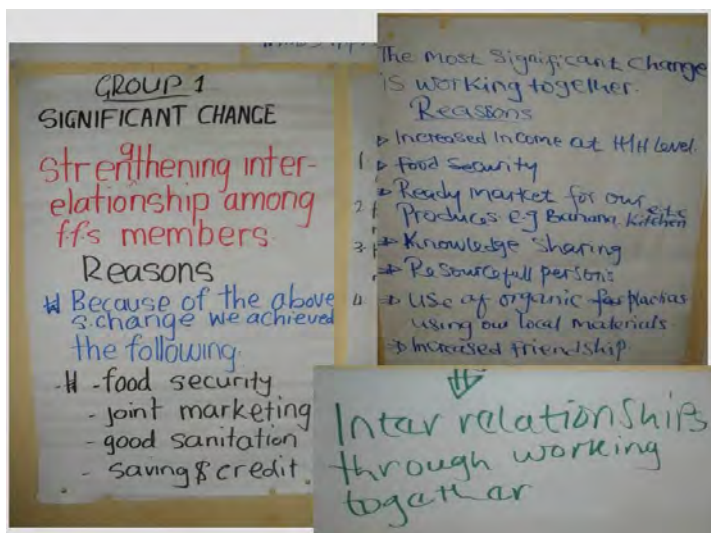 GROUP 1
SIGNIFICANT CHANGE
Strengthening inter-
elationship among
ffs members.
Reasons
Because of the above
s.change we achieved
the following.
- food security
- joint marketing
- good sanitation
- saving & credit
The most Significant Change
is working together.
Reasons
Increased Income at H/H Level.
1 Food Security
Ready market for our
2 Produces e.g Banana, Kitchen etc
3. Knowledge Sharing
Resourcefull persons
4 Use of organic
using our local materials.
Increased Friendship.
Inter relationships
through working
together